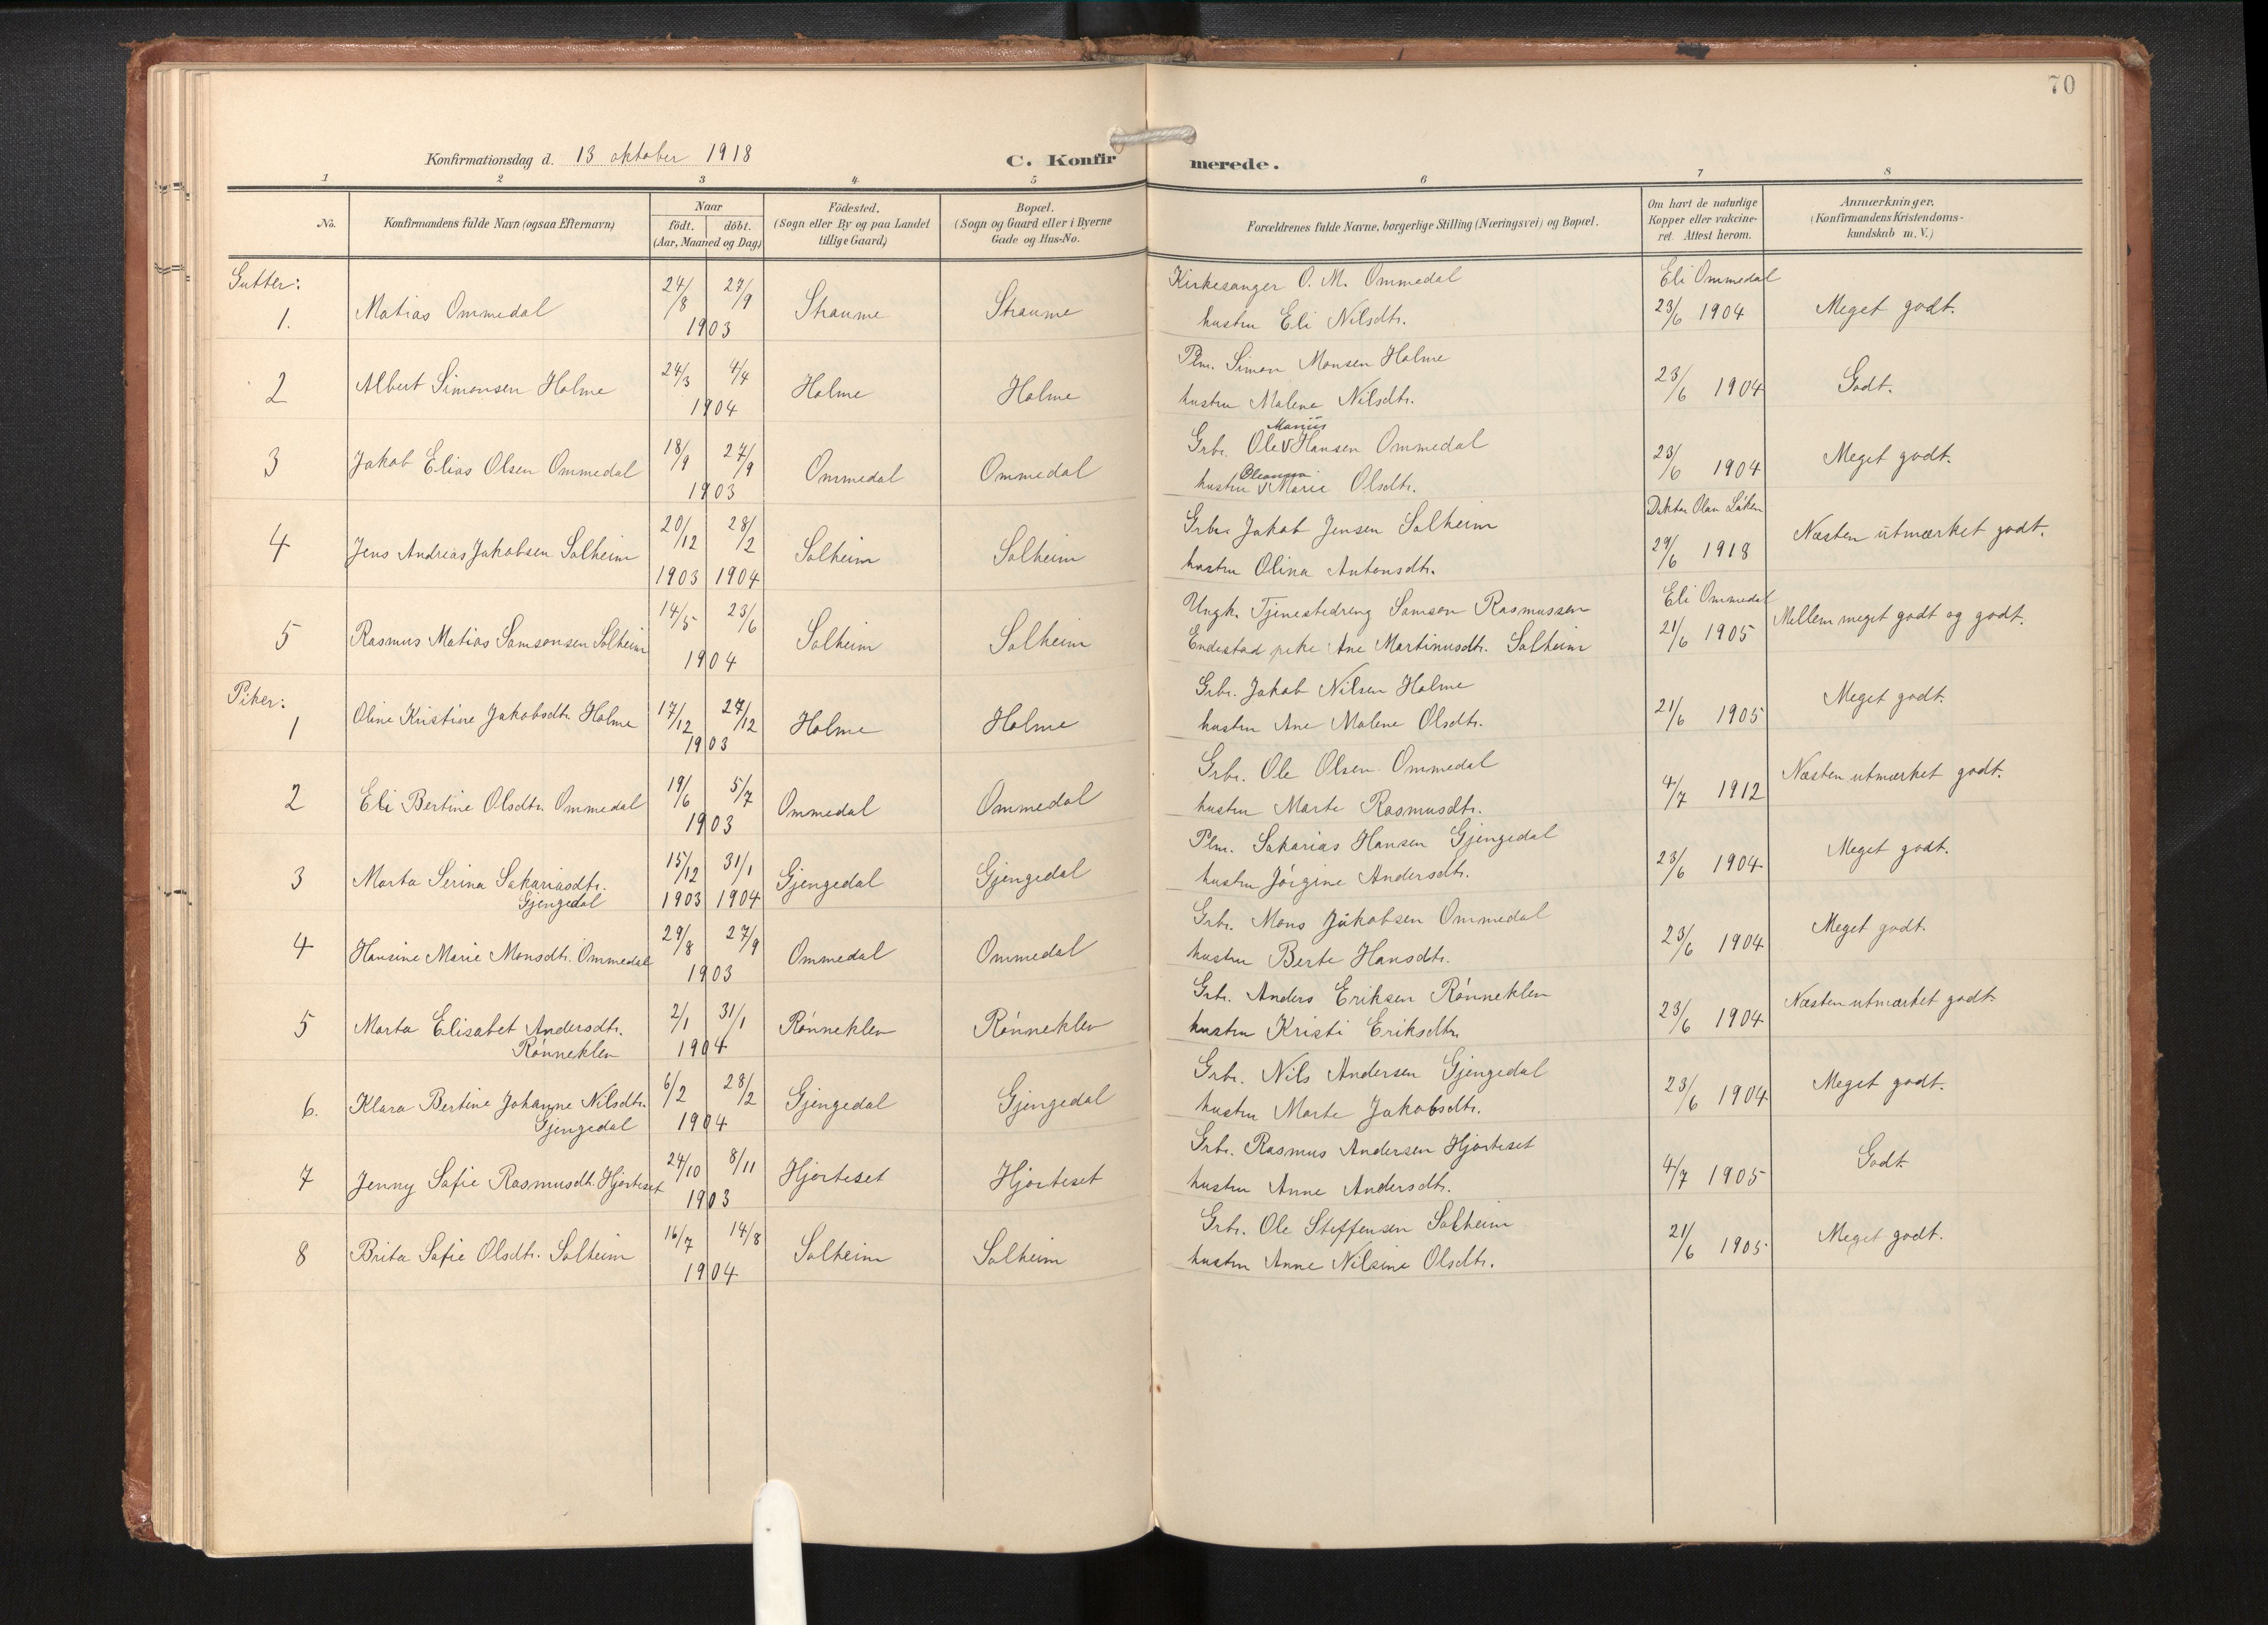 70
Konfirmationsdag d. 13 oktober 1918
C. Konfirmerede.
1 2 3 4 5 6 7 8
No.
Konfirmandens fulde Navn (ogsaa Efternavn)
Naar
født. døbt.
(Aar, Maaned og Dag)
Födested.
(Sogn eller By og paa Landet
tillige Gaard)
Bopæl.
(Sogn og Gaard eller i Byerne
Gade og Hus-No.
Forældrenes fulde Navne, borgerlige Stilling (Næringsvei) og Bopæl.
Om havt de naturlige
Kopper eller vakcine-
ret. Attest herom.
Anmærkninger.
(Konfirmandens Kristendoms-
kundskab m. V.)
Gutter:
1. Matias Ommedal 24/8 27/9 1903 Straume Straume
Kirkesanger O. M. Ommedal
hustru Eli Nilsdtr.
Eli Ommedal
23/6 1904 Meget godt.
2 Albert Simonsen Holme 24/3 4/4 1904 Holme Holme
Plm. Simon Monsen Holme
hustru Malene Nilsdtr.
23/6 1904 Godt.
3 Jakob Elias Olsen Ommedal 18/9 27/9 1903 Ommedal Ommedal
Marius
Grbr. Ole v Hansen Ommedal
Oleanna
hustru v Marie Olsdtr.
23/6 1904 Meget godt.
4 Jens Andreas Jakobsen Solheim 20/12 28/2 1903 1904 Solheim Solheim
Grbr. Jakob Jensen Solheim
hustru Olina Antonsdtr.
Doktor Olav
29/6 1918 Næsten utmærket godt.
5 Rasmus Matias Samsonsen Solheim 14/5 23/6 1904 Solheim Solheim
Ungk. Tjenestedreng Samson Rasmussen
Endestad pike Ane Martinusdtr. Solheim
Eli Ommedal
21/6 1905 Mellem meget godt og godt.
Piker:
1 Oline Kristine Jakobsdtr. Holme 17/12 27/12 1903 Holme Holme
Grbr. Jakob Nilsen Holme
hustru Ane Malene Olsdtr.
21/6 1905 Meget godt.
2 Eli Bertine Olsdtr. Ommedal 19/6 5/7 1903 Ommedal Ommedal
Grbr. Ole Olsen Ommedal
hustru Marte Rasmusdtr.
4/7 1912 Næsten utmærket godt.
3 Marta Serina Sakariasdtr.
Gjengedal
15/12 31/1 1903 1904 Gjengedal Gjengedal
Plm. Sakarias Hansen Gjengedal
hustru Jørgine Andersdtr.
23/6 1904 Meget godt.
4 Hansine Marie Monsdtr. Ommedal 29/8 27/9 1903 Ommedal Ommedal
Grbr. Mons Jakobsen Ommedal
hustru Berte Hansdtr.
23/6 1904 Meget godt.
5 Marta Elisabet Andersdtr.
Rønneklev
2/1 31/1 1904 Rønneklev Rønneklev
Grbr. Anders Eriksen Rønneklev
hustru Kristi Eriksdtr.
23/6 1904 Næsten utmærket godt.
6. Klara Bertine Johanne Nilsdtr.
Gjengedal
6/2 28/2 1904 Gjengedal Gjengedal
Grbr. Nils Andersen Gjengedal
hustru Marte Jakobsdtr.
23/6 1904 Meget godt.
7 Jenny Sofie Rasmusdtr. Hjorteset 24/10 8/11 1903 Hjorteset Hjorteset
Grbr. Rasmus Andersen Hjorteset
hustru Anne Andersdtr.
4/7 1905 Godt.
8 Brita Sofie Olsdtr. Solheim 16/7 14/8 1904 Solheim Solheim
Grbr. Ole Steffensen Solheim
hustru Anne Nilsine Olsdtr.
21/6 1905 Meget godt.